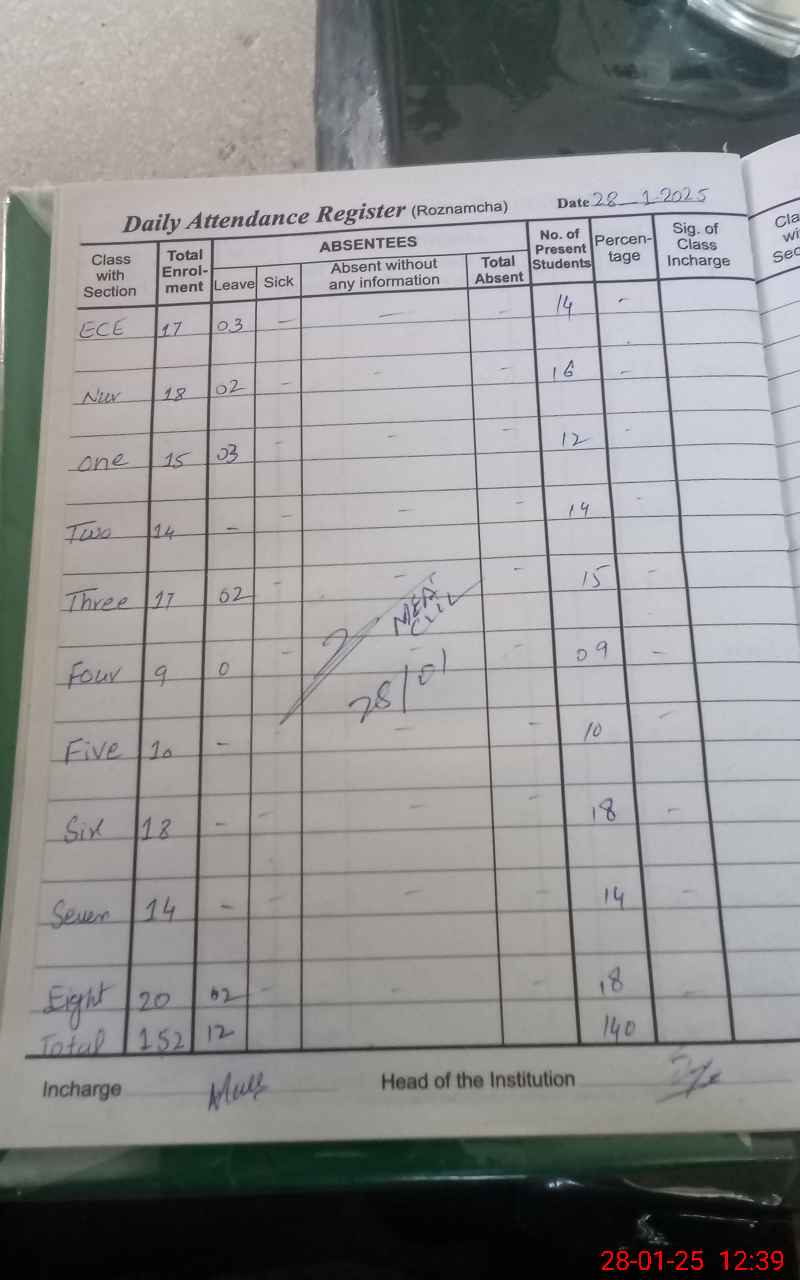 Daily Attendance Register (Roznamcha) Date 28-1-2025
Class with Section Total Enrol-ment ABSENTEES Leave Sick Absent without any information Total Absent No. of Present Students Percen-tage Sig. of Class Incharge
ECE 17 03 - - - 14 -
Nur 18 02 - - - 16 -
One 15 03 - - - 12 -
Two 14 - - - - 14 -
Three 17 02 - - - 15 -
MEA
Four 9 0 - - 09 -
28/01
Five 10 - - - 10 -
Six 18 - - - - 18 -
Seven 14 - - - - 14 -
Eight 20 02 - - - 18 -
Total 152 12 140
Incharge Head of the Institution
Cla
wi
Sec
28-01-25 12:39